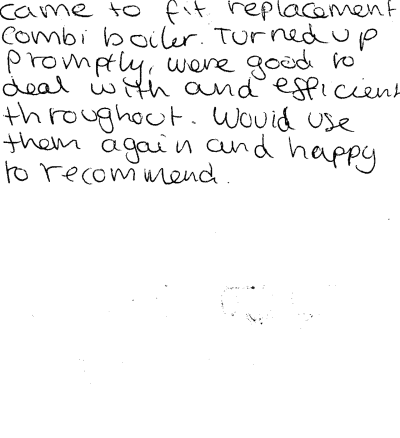 came to fit replacement
combi boiler. Turned up
promptly, were good to
deal with and efficient
throughout. Would use
them again and happy
to recommend.